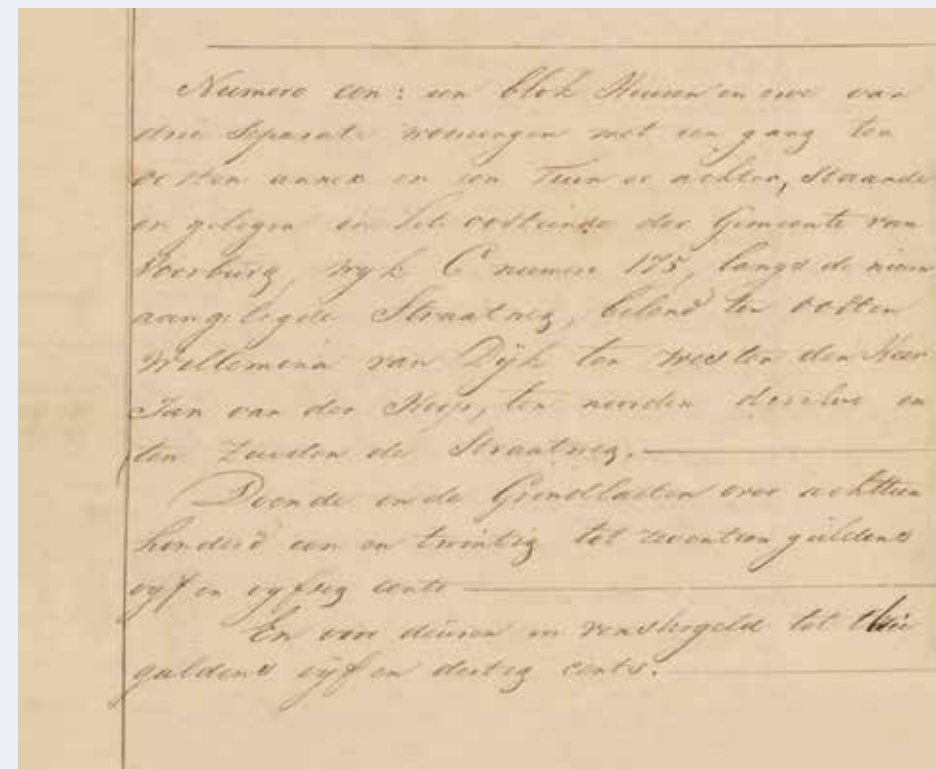 Numero een: een blok Huisen en erve van
drie Separate woningen met een gang ten
oosten annex en een Tuin er achter, Staande
en gelegen in het oosteinde der Gemeente van
Voorburg, wyk C numero 175, langs de nieuw
aangelegde Straatweg, belend ten oosten
Willemina van Dÿk ten westen den Heer
Jan van der Kooÿ, ten noorden dezelve en
ten Zuiden de Straatweg.
Doende in de Grondlasten over achttien
honderd een en twintig tot zeventien guldens
vyf en vyftig cents
En voor deuren en venstergeld tot
guldens vyf en dertig cents.